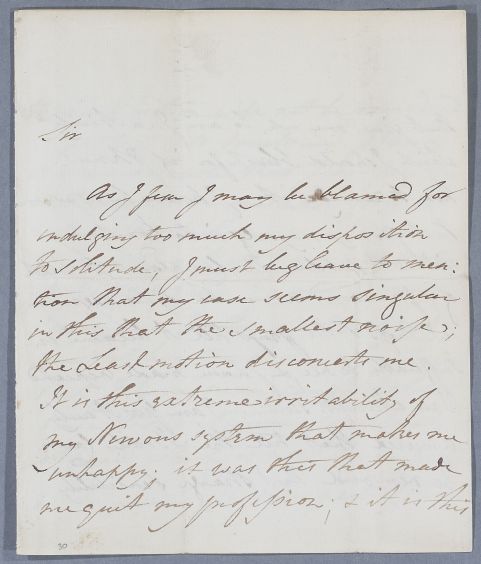 Sir
As I fear I may be blamed for
indulging too much my disposition
to Solitude, I must beg leave to men:
tion that my case seems singular
in this that the smallest noise,
the least motion disconcerts me.
It is this extreme irritability of
my Nervous system that makes me
unhappy. it was this that made
me quit my profession; & it is this
30